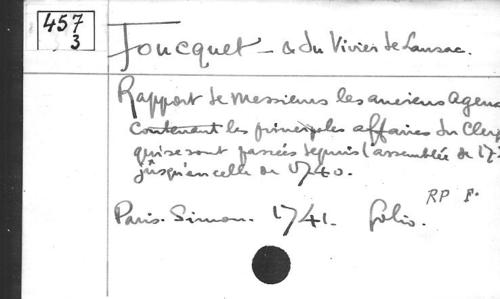 457
3
Foucquet - & du Vivier de Lansac.
Rapport de Messieurs les anciens Agen
contenant les principales affaires du Cler
qui se sont passées depuis l'assemblée de 17
jusqu'en celle de 1740.
RP F.
Paris. Simon. 1741. folio.